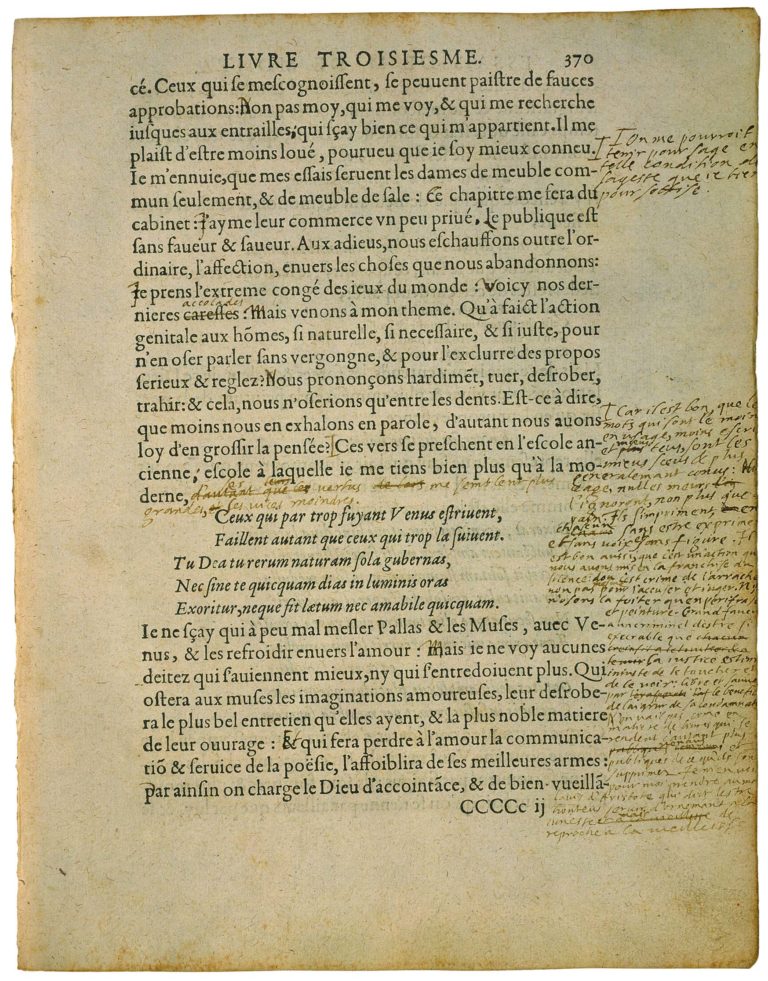 LIVRE TROISIESME. 370
cé. Ceux qui se mescognoissent, se peuuent paistre de fauces
approbations: Non pas moy, qui me voy, & qui me recherche
iusques aux entrailles; qui sçay bien ce qui m'appartient. Il me
plaist d'estre moins loué, pourueu que ie soy mieux conneu.
Ie m'ennuie, que mes essais seruent les dames de meuble com-
mun seulement, & de meuble de sale: Ce chapitre me fera du
cabinet: J'ayme leur commerce vn peu priué. Le publique est
sans faueur & saueur. Aux adieus, nous eschauffons outre l'or-
dinaire, l'affection, enuers les choses que nous abandonnons:
Je prens l'extreme congé des ieux du monde: Voicy nos der-
accolades
nieres caresses: Mais venons à mon theme. Qu'à faict l'action
genitale aux hõmes, si naturelle, si necessaire, & si iuste, pour
n'en oser parler sans vergongne, & pour l'exclurre des propos
serieux & reglez? Nous prononçons hardimēt, tuer, desrober,
trahir: & cela, nous n'oserions qu'entre les dents. Est-ce à dire,
que moins nous en exhalons en parole, d'autant nous auons
loy d'en grossir la pensée? Ces vers se preschent en l'escole an-
cienne, escole à laquelle ie me tiens bien plus qu'à la mo-
derne, vertus me semblent plus
grandes, ses vices moindres.
Ceux qui par trop fuyant Venus estriuent,
Faillent autant que ceux qui trop la suiuent.
Tu Dea tu rerum naturam sola gubernas,
Nec sine te quicquam dias in luminis oras
Exoritur, neque fit lætum nec amabile quicquam.
Ie ne sçay qui à peu mal mesler Pallas & les Muses, auec Ve-
nus, & les refroidir enuers l'amour: Mais ie ne voy aucunes
deitez qui s'auiennent mieux, ny qui s'entredoiuent plus. Qui
ostera aux muses les imaginations amoureuses, leur desrobe-
ra le plus bel entretien qu'elles ayent, & la plus noble matiere
de leur ouurage: & qui fera perdre à l'amour la communica-
tiõ & seruice de la poësie, l'affoiblira de ses meilleures armes:
par ainsin on charge le Dieu d'accointãce, & de bien-vueillã-
CCCCc ij
On me pourroit
tenir pour sage en
telle condition de
sagesse que ie tien
pour sottise.
Car il est bon, que les
mots qui sont le moins
en usage, moins escri
teus, sont les
mieus sceus et plus
generalement conus:
aage, nulles meurs
l'ignorent, non plus que
pain. Ils s'impriment en
chascun sans estre exprime
et sans voix et sans figure. Il
est bon aussi, que c'est un'action que
nous avons mis en la franchise du
silence d'ou c'est crime de l'arracher
non pas pour l'accuser et juger. Ny
n'osons la foiter qu'en perifrase
et peinture. Grand faveur
a un criminel d'estre si
execrable que
la justice estime
injuste de le toucher et
de le voir: libre et sauve
par le benefice
de l'aigreur de sa condamnation
N'en va il pas come en
matiere de livres qui se
rendent d'autant plus
publiques de ce qu'ils sont
supprimez. Je m'en vois
pour moi prendre au mot
l'avis d'Aristote qui dict l'estre
honteus servir d'ornemant a la
junesse mais de
reproche a la vieillesse